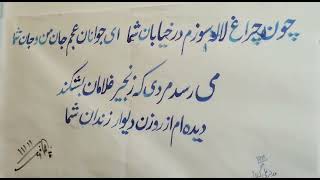 چون چراغ لاله سوزم در خیابان شما ای جوانان عجم جان من و جان شما
می رسد مردی که زنجیر غلامان بشکند
دیده ام از روزن دیوار زندان شما